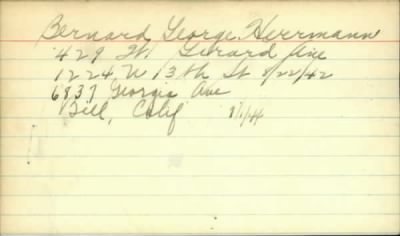 Bernard George Herrmann
429 W Girard Ave
1224 W 13th St 8/22/42
6837 Georgia Ave
Bell, Calif 8/1/44